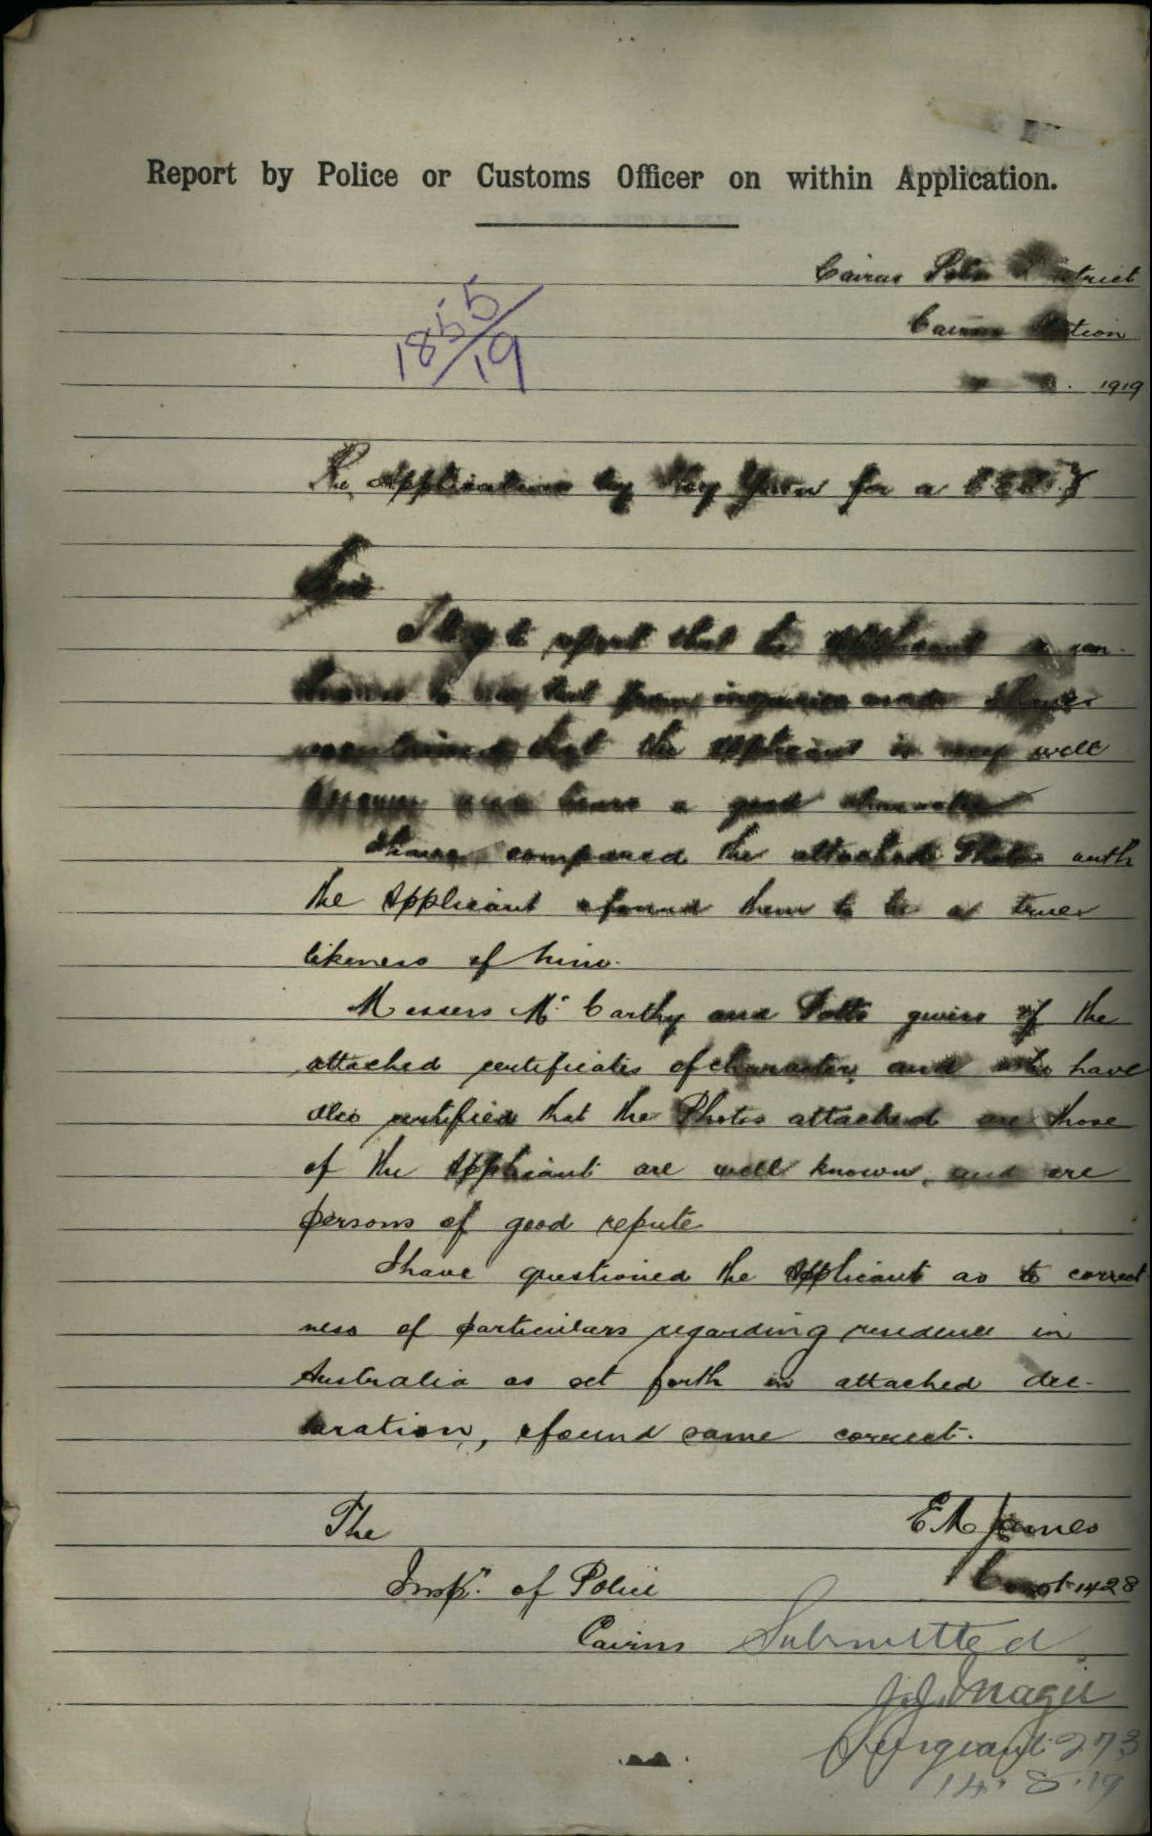 Report by Police or Customs Officer on within Application.
Cairns District
1855/19
Cairns Station
1919
Re Application by for a C.E.D.T
Sir
I beg to report that the Applicant is un-
known to me, but from inquiries made I have
that the applicant is very well
known and bears a good character
I have compared the attached Photos with
the Applicant & found them to be a true
likeness of him.
Messers McCarthy and Potts givers of the
attached certificates of character, and who have
also certified that the Photos attached are those
of the Applicant are well known, and are
persons of good repute
I have questioned the Applicant as to correct-
ness of particulars regarding residence in
Australia as set forth in attached dec-
laration, & found same correct.
The E M James
Const 1428
Inspr. of Police
Cairns Submitted
Magee
Sergeant 273
14.8.19